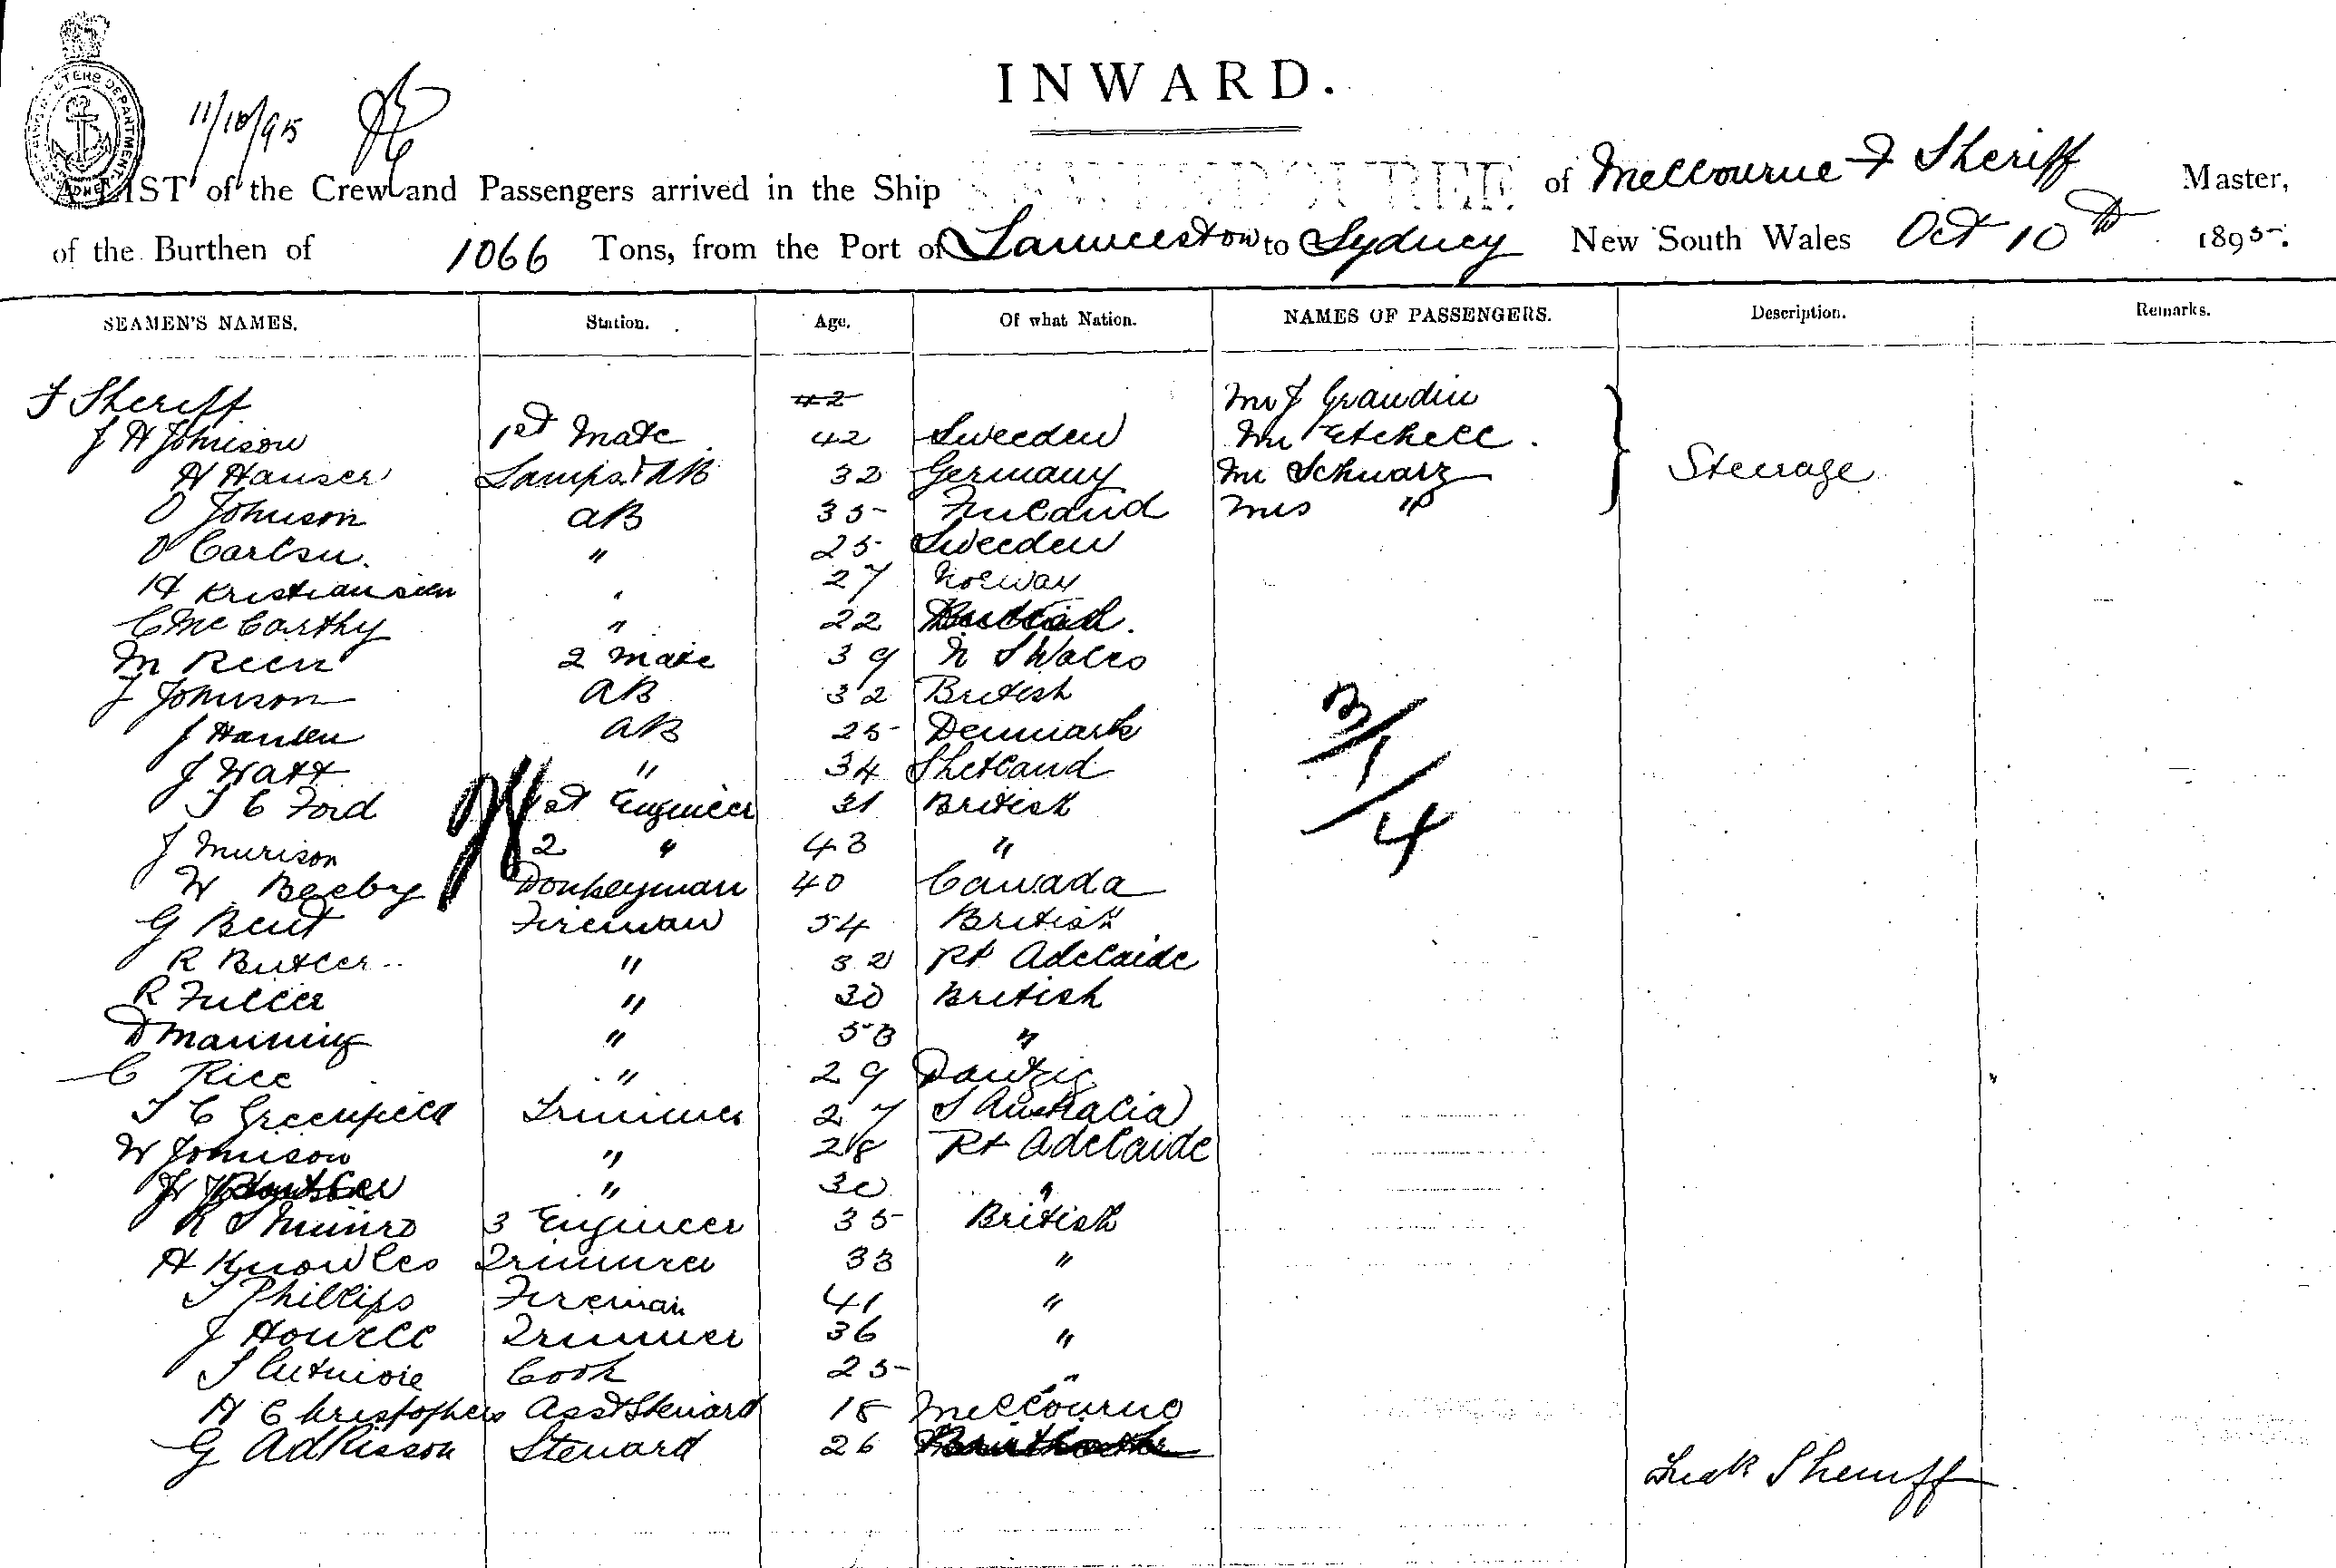 INWARD.
11/10/95
A LIST of the Crew and Passengers arrived in the Ship of Melbourne F Sheriff Master,
of the Burthen of 1066 Tons, from the Port of Launceston to Sydney New South Wales Oct 10th 1895.
SEAMEN'S NAMES. Station. Age. Of what Nation. NAMES OF PASSENGERS. Description. Remarks.
F Sheriff 42 Mr J Grandin
J H Johnson 1st Mate 42 Sweeden Mr Etchell
H Hauser Lamps & AB 32 Germany Mr Schwarz Steerage
O Johnson AB 35 Finland Mrs "
O Carlsn. " 25 Sweeden
H Kristiansen " 27 Norway
C McCarthy " 22
M Reen 2 Mate 39 N S Wales
J Johnson AB 32 British
J Hansen AB 25 Denmark
J Watt " 34 Shetland
T C Ford 1st Engineer 31 British
J Murison 2 " 43 "
W Beeby Donkeyman 40 Canada
G Bent Fireman 54 British
R Butler " 32 Pt Adelaide
R Fuller " 30 British
D Manning " 53 "
C Rice " 29 Dantzig
T C Greenfield Trimmer 27 S Australia
W Johnson " 28 Pt Adelaide
" 30 "
R S Munro 3 Engineer 35 British
H Knowles Trimmer 33 "
T Phillips Fireman 41 "
J Howell Trimmer 36 "
S Cutmore Cook 25 "
H Christophers Asst Steward 18 Melbourne
G Adkisson Steward 26
3/1/4
Fredk Sheriff